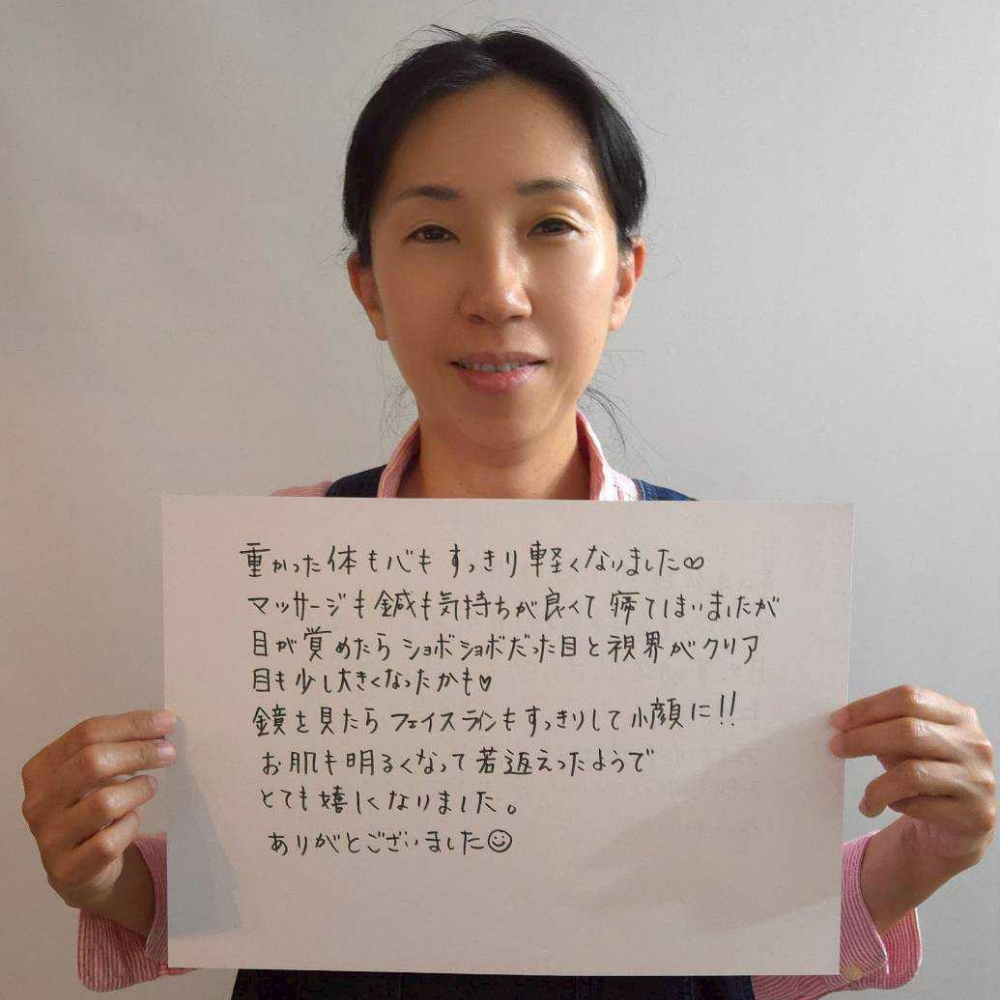 重かった体も心もすっきり軽くなりました♡
マッサージも鍼も気持ちが良くて寝てしまいましたが
目が覚めたらショボショボだった目と視界がクリア
目も少し大きくなったかも♥
鏡を見たらフェイスラインもすっきりして小顔に!!
お肌も明るくなって若返えったようで
とても嬉しくなりました。
ありがとございました☺